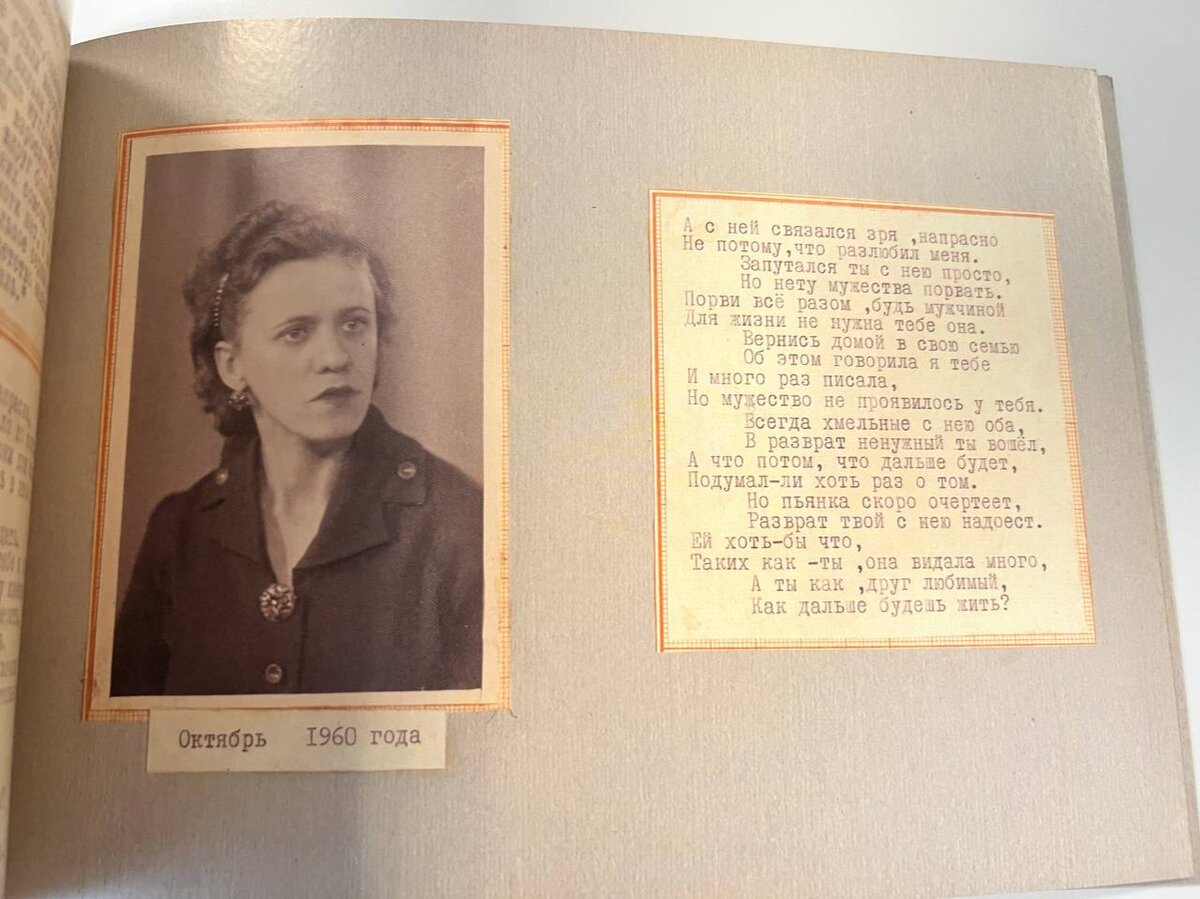 Октябрь 1960 года
А с ней связался зря ,напрасно
Не потому,что разлюбил меня.
Запутался ты с нею просто,
Но нету мужества порвать.
Порви всё разом ,будь мужчиной
Для жизни не нужна тебе она.
Вернись домой в свою семью
Об этом говорила я тебе
И много раз писала,
Но мужество не проявилось у тебя.
Всегда хмельные с нею оба,
В разврат ненужный ты вошёл,
А что потом, что дальше будет,
Подумал-ли хоть раз о том.
Но пьянка скоро очертеет,
Разврат твой с нею надоест.
Ей хоть-бы что,
Таких как -ты ,она видала много,
А ты как ,друг любимый,
Как дальше будешь жить?